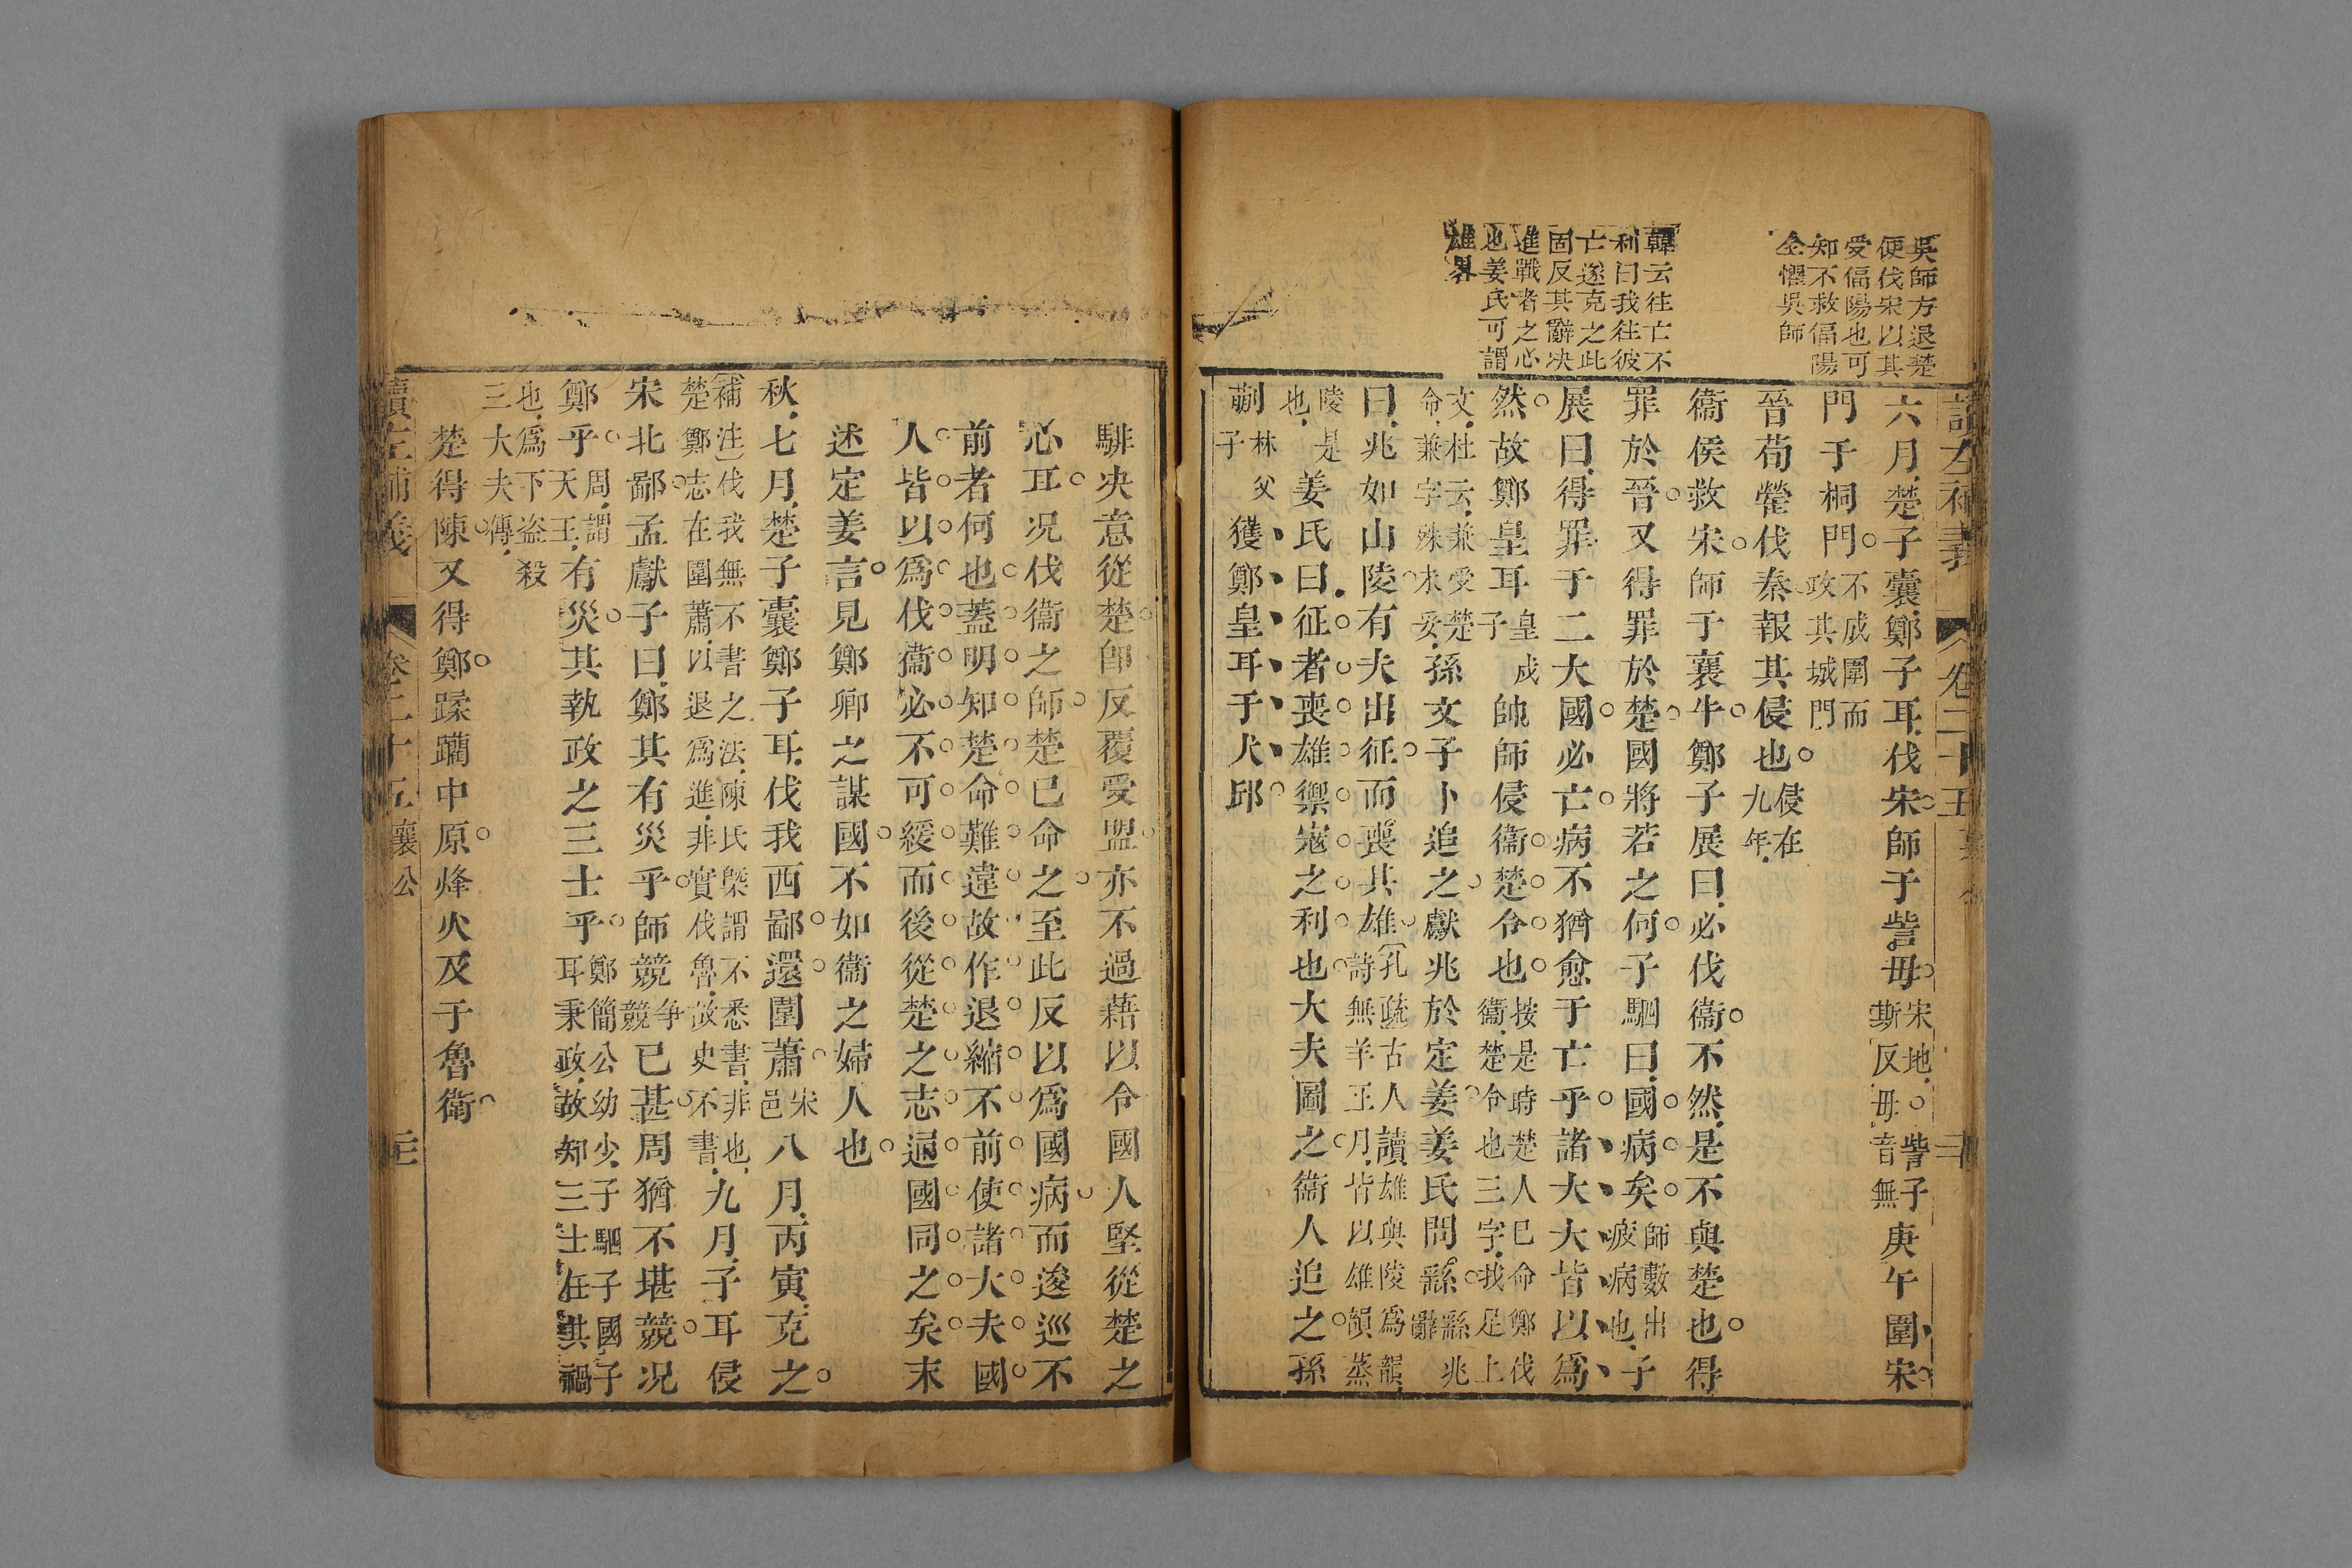 吳師方退楚
使伐宋以其
受偪陽也可
知不救偪陽
全懼吳師
韓云往亡不
利曰我往彼
亡遂克之此
固反其辭决
進戰者之心
也姜氏可謂
雄畧
讀左補義 卷二十五 襄公
六月楚子囊鄭子耳伐宋師于訾毋宋地○訾子斯反毋音無庚午圍宋
門于桐門不成圍而政其城門
晉荀罃伐秦報其侵也侵在九年
衞侯救宋師于襄牛鄭子展曰必伐衞不然是不與楚也得
罪於晉又得罪於楚國將若之何子駟曰國病矣師數出疲病也子
展曰得罪于二大國必亡病不猶愈于亡乎諸大夫皆以爲
然故鄭皇耳皇戌子帥師侵衞楚令也按是時楚人巳命鄭伐衞楚令也三字我足上
文杜云兼受楚命兼字殊未妥孫文子卜追之獻兆於定姜姜氏問繇繇兆辭
曰兆如山陵有夫出征而喪其雄孔疏古人讀雄與陵爲韻詩無羊正月皆以雄韻蒸
陵是也姜氏曰征者喪雄禦寇之利也大夫圖之衞人追之孫
蒯林父子獲鄭皇耳于犬邱
騑央意從楚卽反覆受盟亦不過藉以令國人堅從楚之
心耳况伐衞之師楚已命之至此反以爲國病而逡巡不
前者何也蓋明知楚命難違故作退縮不前使諸大夫國
人皆以爲伐衞必不可緩而後從楚之志逼國同之矣末
述定姜言見鄭卿之謀國不如衞之婦人也
秋七月楚子囊鄭子耳伐我西鄙還圍蕭宋邑八月丙寅克之
補注伐我無不書之法陳氏槩謂不悉書非也楚鄭志在圍蕭以退爲進非實伐魯故史不書九月子耳侵
宋北鄙孟獻子曰鄭其有災乎師競爭競已甚周猶不堪競况
鄭乎周謂天王有災其執政之三士乎鄭簡公幼少子駟子國子耳秉政故知三士任其禍
也爲下盗殺三大夫傳
楚得陳又得鄭蹂躪中原烽火及于魯衞
讀左補義 卷二十五 襄公